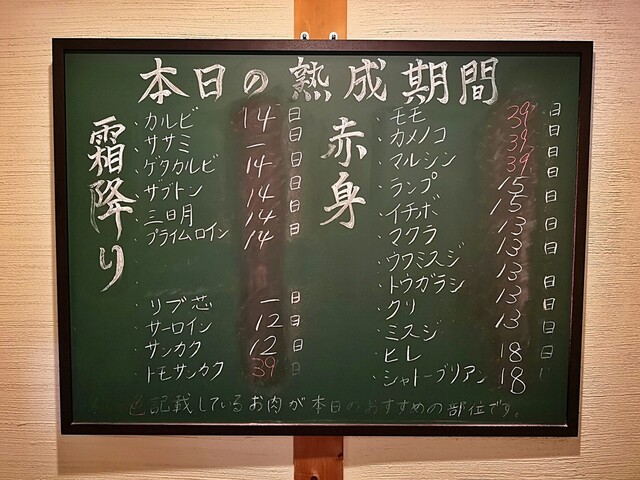 本日の熟成期間
霜降り
・カルビ 14日
・ササミ ー日
・ゲタカルビ 14日
・ザブトン 14日
・三日月 14日
・プライムロイン 14日
・リブ芯 ー日
・サーロイン 12日
・サンカク 12日
・トモサンカク 39日
赤身
・モモ 39日
・カメノコ 39日
・マルシン 39日
・ランプ 15日
・イチボ 15日
・マクラ 13日
・ウワミスジ 13日
・トウガラシ 13日
・クリ 13日
・ミスジ 13日
・ヒレ 18日
・シャトーブリアン 18日
記載しているお肉が本日のおすすめの部位です。